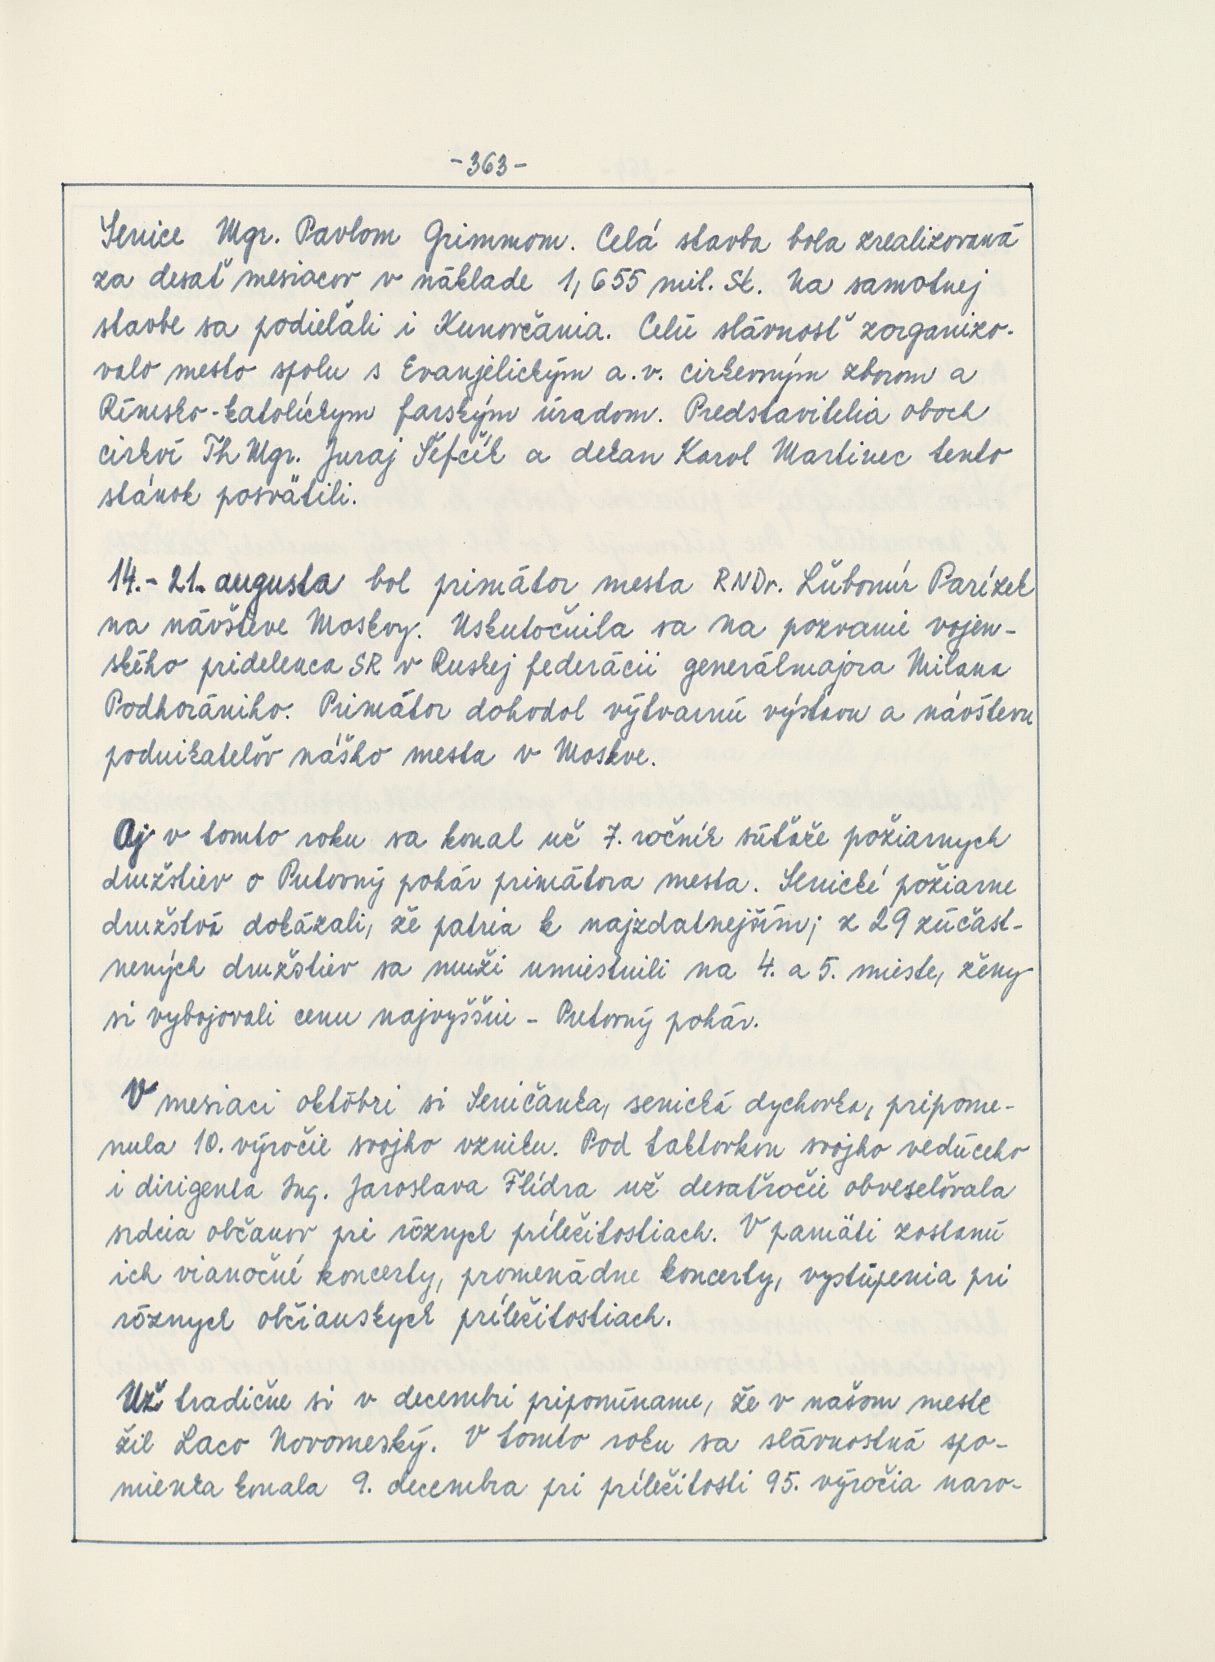 -363-
Senice Mgr. Pavlom Grimmom. Celá stavba bola zrealizovaná
za desať mesiacov v náklade 1,655 mil. Sk. Na samotnej
stavbe sa podieľali i Kunovčania. Celú slávnosť zorganizo-
valo mesto spolu s Evanjelickým a.v. cirkevným zborom a
Rímsko-katolíckym farským úradom. Predstavitelia oboch
cirkví ThMgr. Juraj Šefčík a dekan Karol Martinec tento
stánok posvätili.
14.-21. augusta bol primátor mesta RNDr. Ľubomír Parízek
na návšteve Moskvy. Uskutočnila sa na pozvanie vojen-
ského pridelenca SR v Ruskej federácii generálmajora Milana
Podhorániho. Primátor dohodol výtvarnú výstavu a návštevu
podnikateľov nášho mesta v Moskve.
Aj v tomto roku sa konal už 7. ročník súťaže požiarnych
družstiev o Putovný pohár primátora mesta. Senické požiarne
družstvá dokázali, že patria k najzdatnejším; z 29 zúčast-
nených družstiev sa muži umiestnili na 4. a 5. mieste, ženy
si vybojovali cenu najvyššiu - Putovný pohár.
V mesiaci októbri si Seničanka, senická dychovka, pripome-
nula 10. výročie svojho vzniku. Pod taktovkou svojho vedúceho
i dirigenta Ing. Jaroslava Flídra už desaťročie obveseľovala
srdcia občanov pri rôznych príležitostiach. V pamäti zostanú
ich vianočné koncerty, promenádne koncerty, vystúpenia pri
rôznych občianskych príležitostiach.
Už tradične si v decembri pripomíname, že v našom meste
žil Laco Novomeský. V tomto roku sa slávnostná spo-
mienka konala 9. decembra pri príležitosti 95. výročia naro-